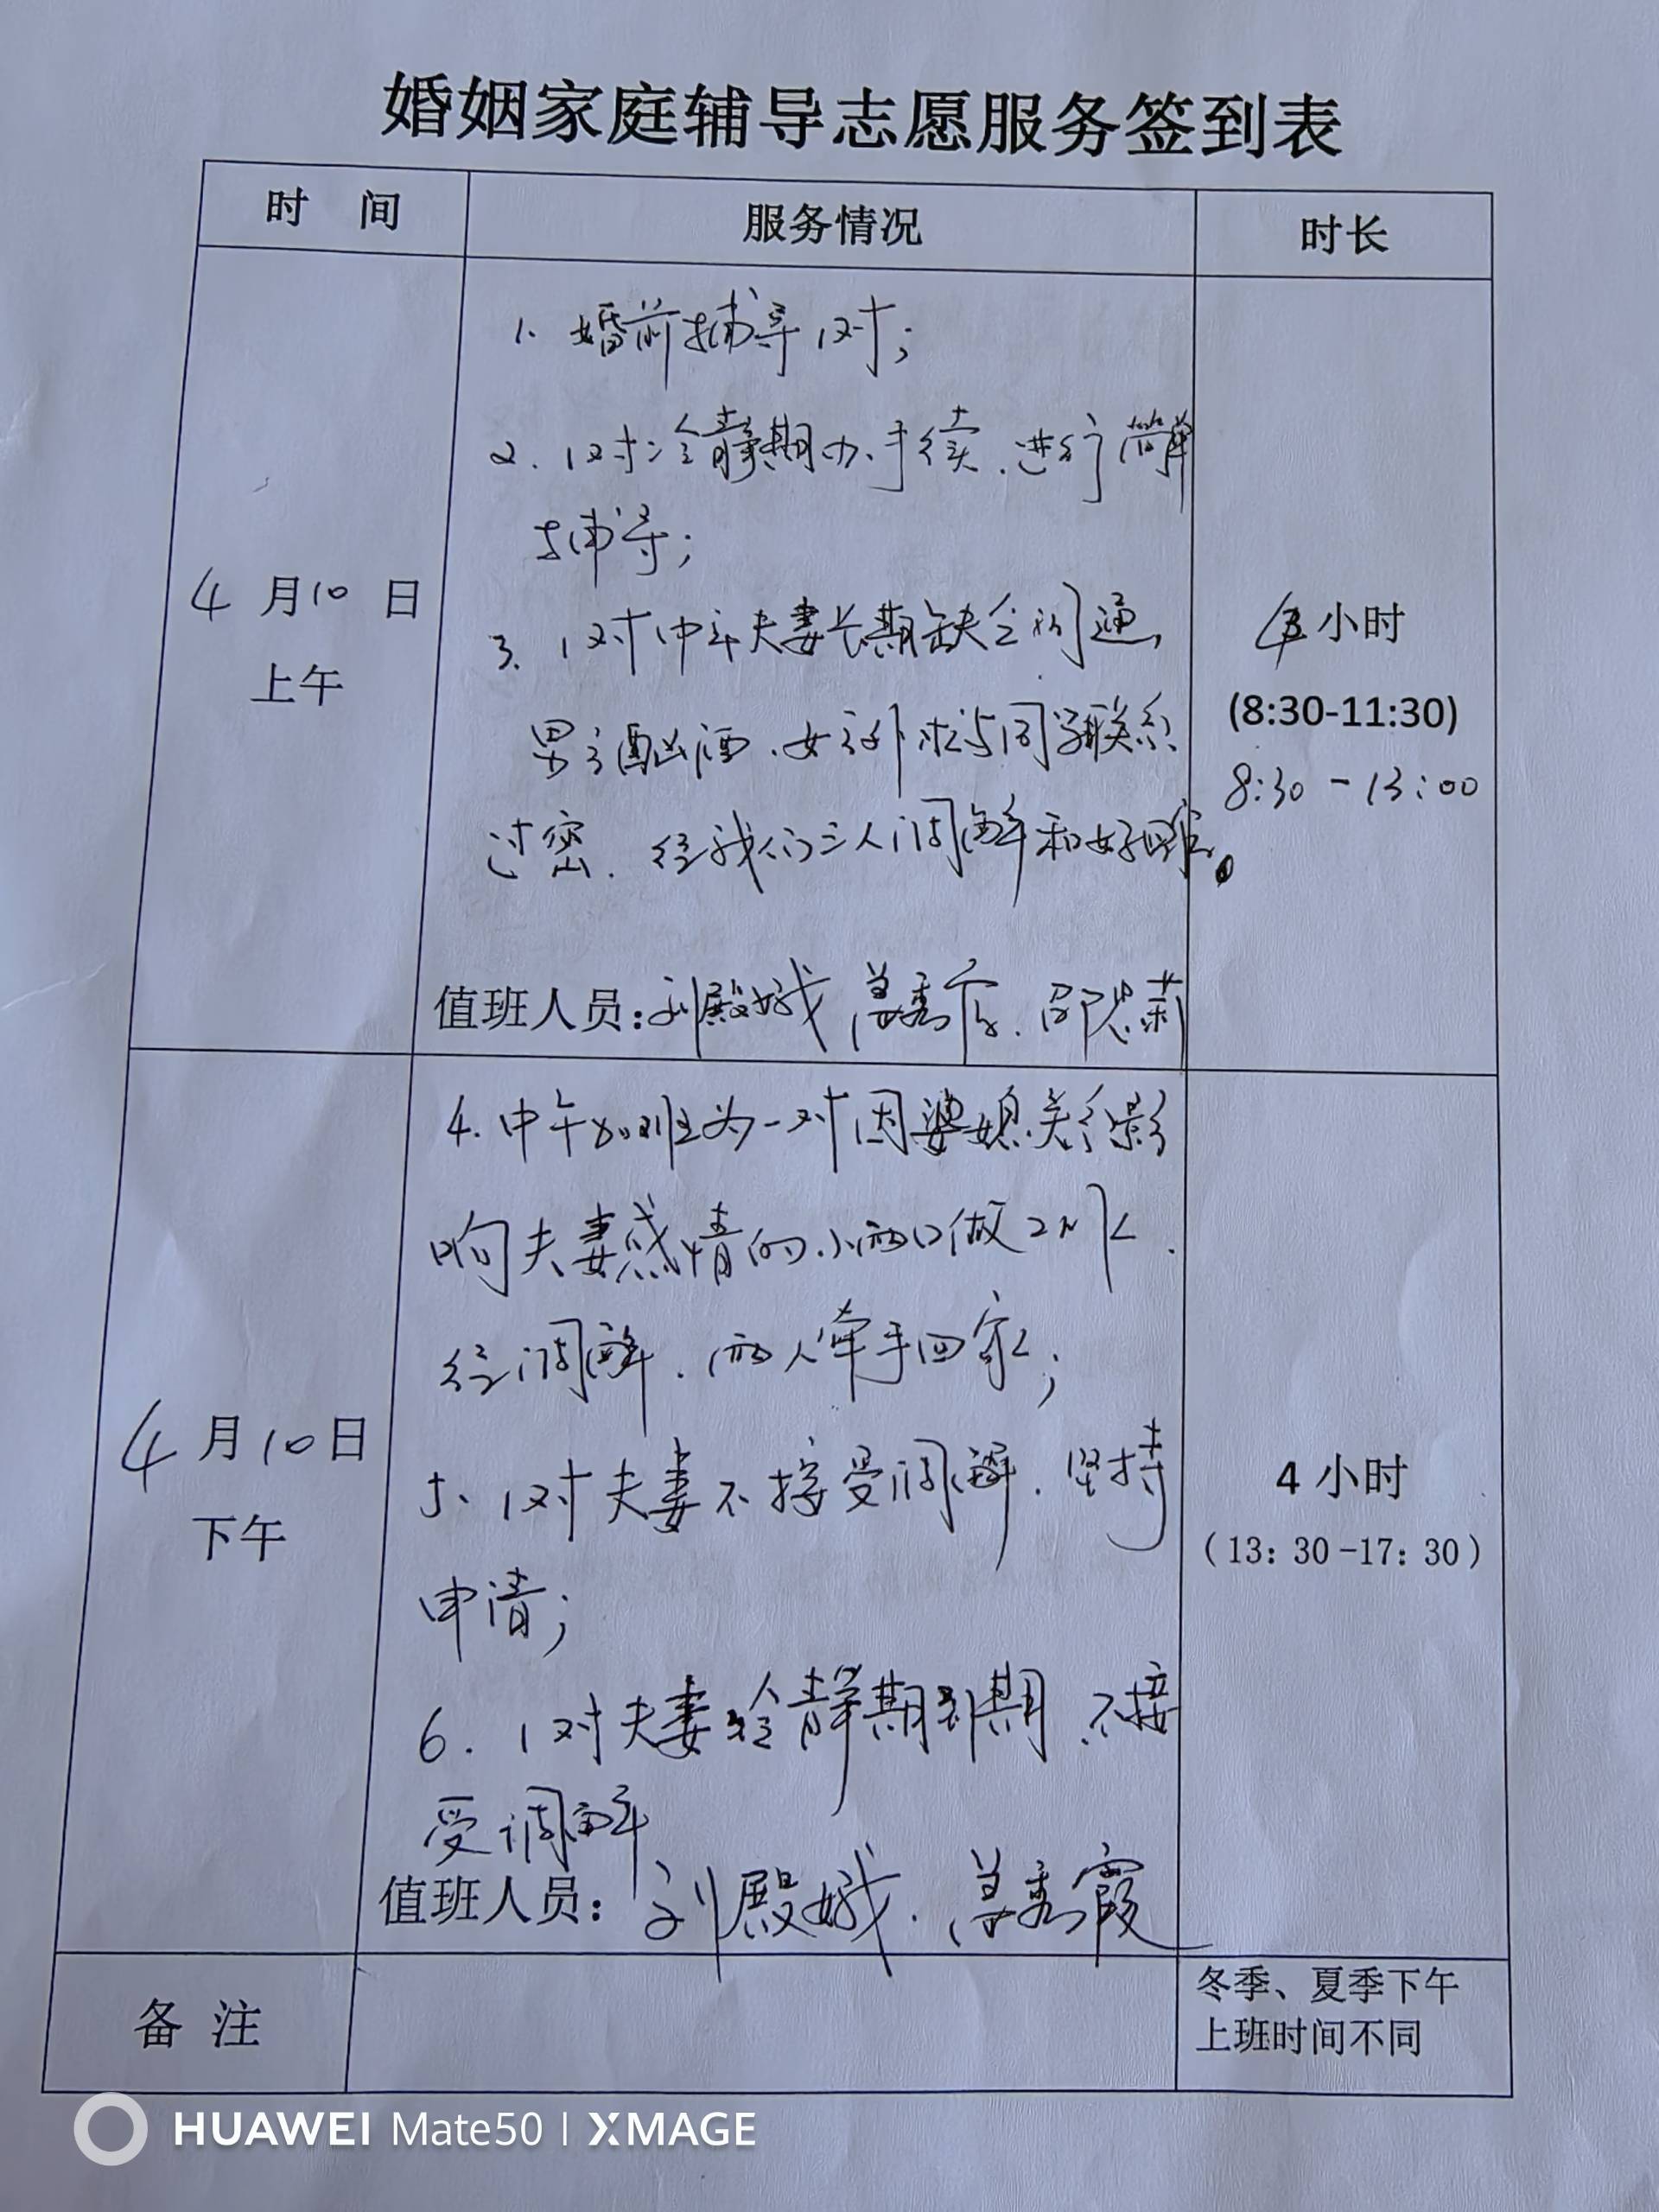 婚姻家庭辅导志愿服务签到表
时 间 服务情况 时长
1. 婚前辅导1对;
2. 1对冷静期办手续.进行简单
辅导;
3. 1对中年夫妻长期缺乏沟通,
男方酗酒.女方外 与同学联系
过密.经我们三人调解和好
4月10日
上午
4小时
(8:30-11:30)
8:30-13:00
值班人员:刘殿娥 秀 邵 莉
4.中午加班为一对因婆媳关系影
响夫妻感情的小两口做工作.
经调解.俩人牵手回家;
5、1对夫妻不接受调解.坚持
申请;
6. 1对夫妻冷静期到期.不接
受调解
4月10日
下午
4小时
(13:30-17:30)
值班人员:刘殿娥. 秀霞
备 注
冬季、夏季下午
上班时间不同
HUAWEI Mate50 | XMAGE